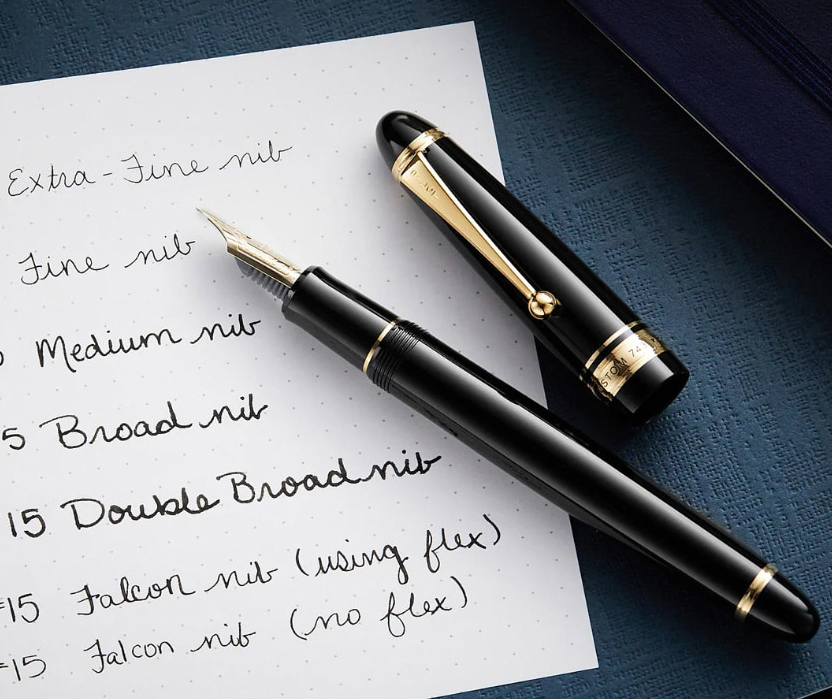 Extra-Fine nib
Fine nib
Medium nib
5 Broad nib
15 Double Broad nib
15 Falcon nib (using flex)
15 Falcon nib (no flex)
STOM 74